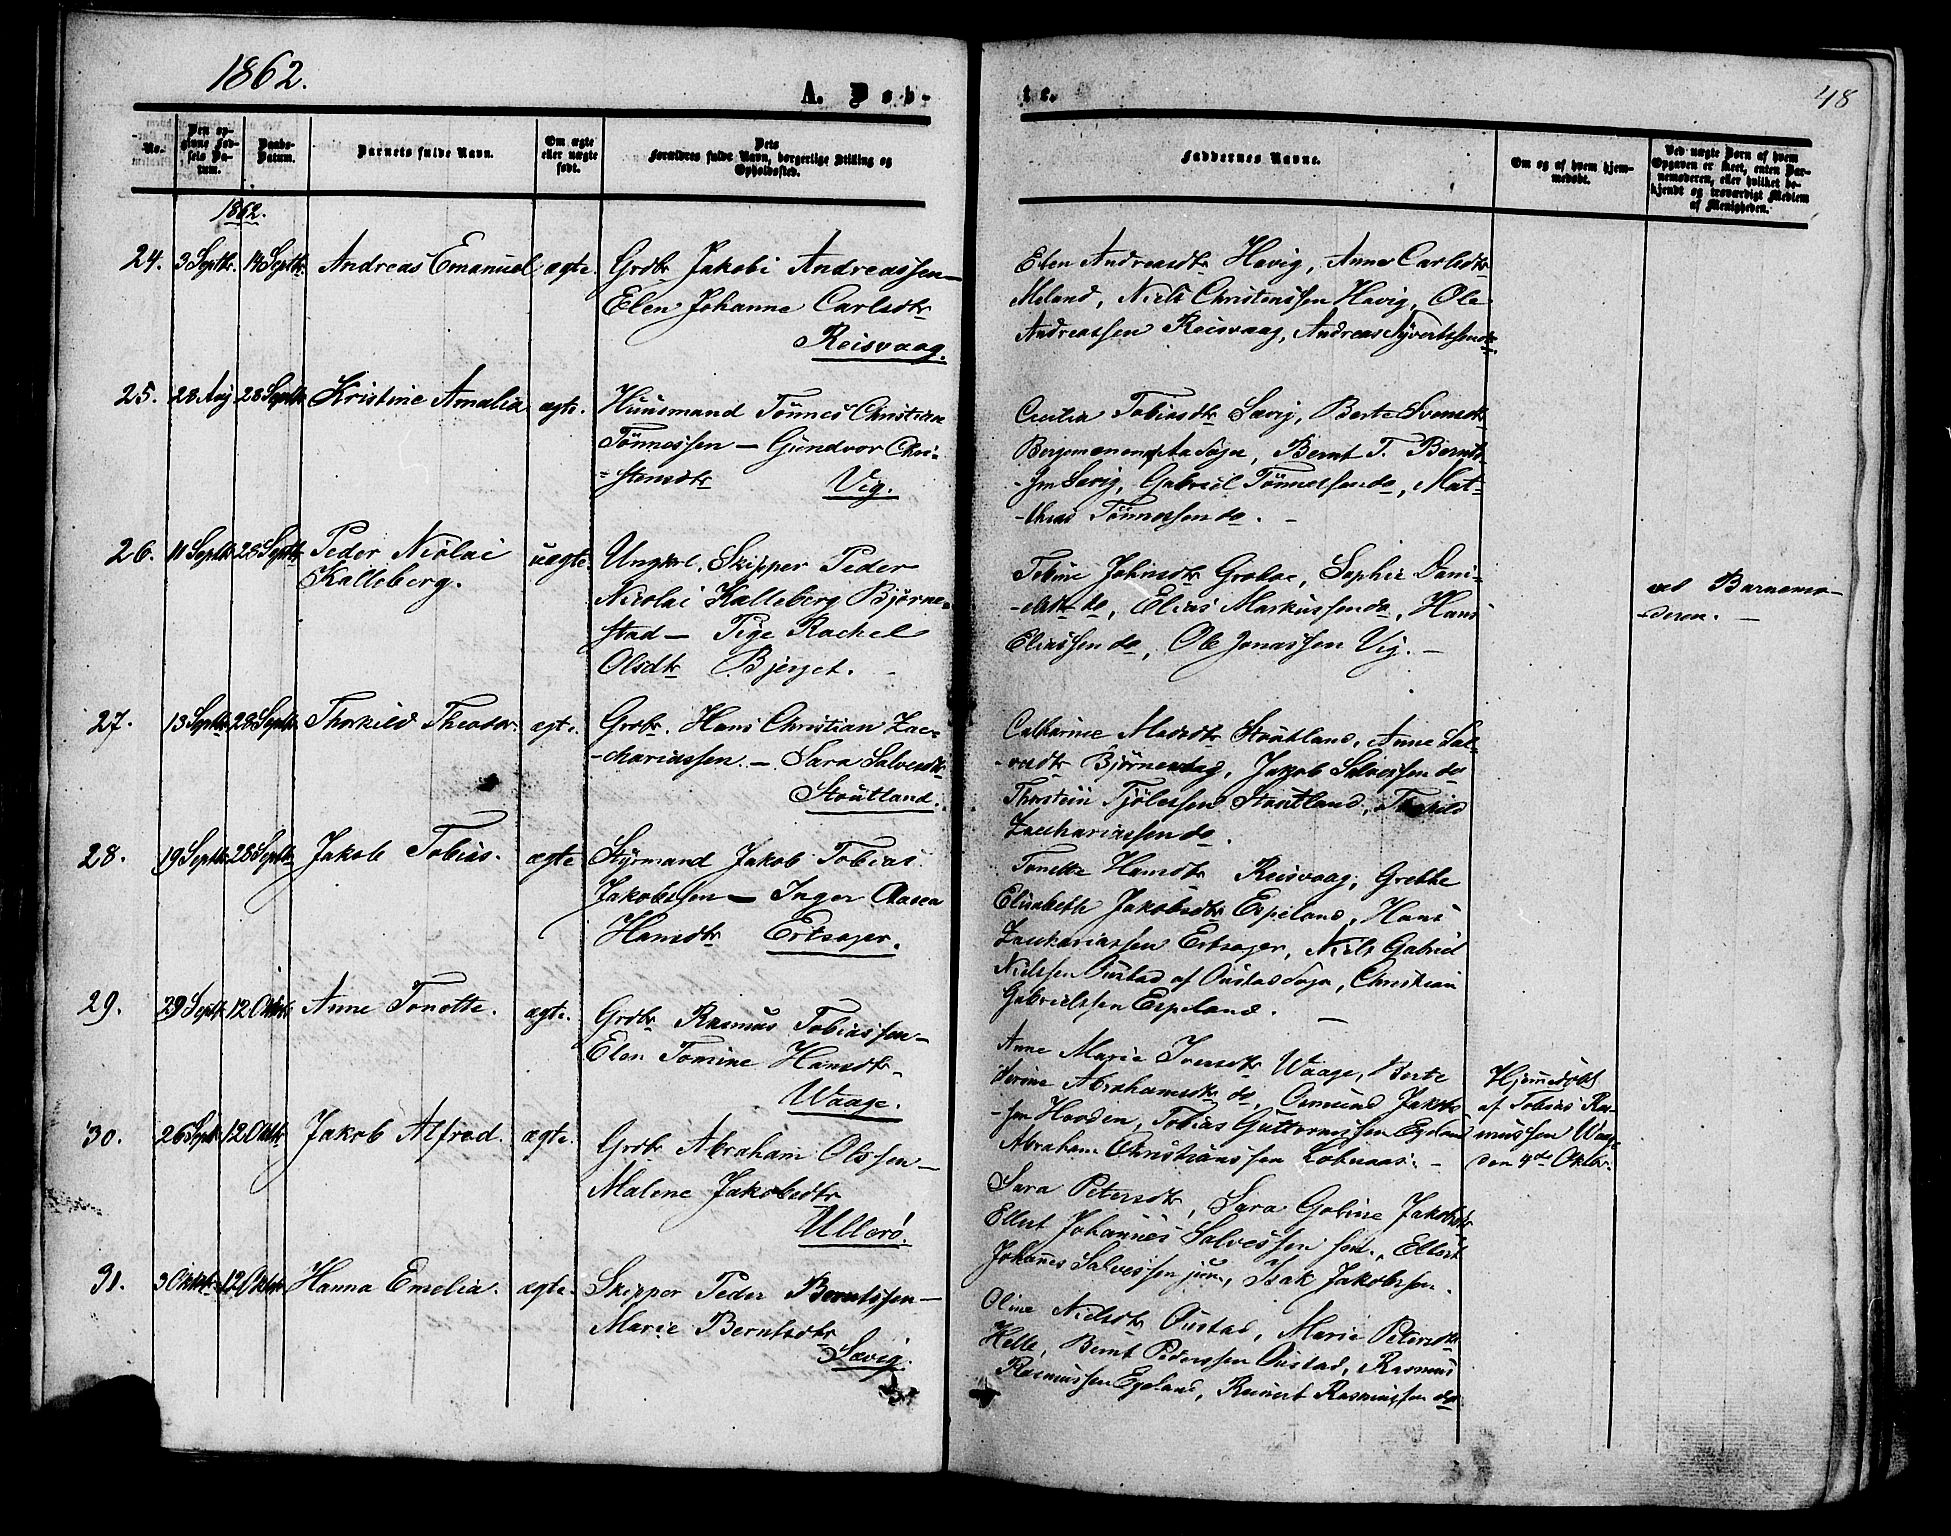 1862.
A. Døb-
te.
48
No.
Den op-
givne Fød-
sels Da-
tum.
Daabs-
Datum.
Barnets fulde Navn.
Om ægte
eller uægte
født.
Dets
Forældres fulde Navn, borgerlige Stilling og
Opholdssted.
Faddernes Navne.
Om og af hvem hjem-
medøbt.
Ved uægte Børn af hvem
Opgaven er skeet, enten Bar-
nemoderen, eller hvilket be-
kjendt og troværdigt Medlem
af Menigheden.
1862.
24. 3 Septbr. 14 Septbr. Andreas Emanuel ægte. Grdbr Jakob Andreassen —
Elen Johanne Carlsdtr
Reisvaag.
Elen Andreasdtr Havig, Anne Carlsdtr
Meland, Niels Christenssen Havig, Ole
Andreassen Reisvaag, Andreas Syvertssen do.
25. 28 Aug 28 Septbr Kristine Amalia ægte. Huusmand Tönnes Christian
Tönnessen — Gundvor Chri-
- stensdtr Vig.
Cecilia Tobiasdtr Sævig, Berte Svensdtr
Sogn, Bernt T. Bernt-
- sen Sævig, Gabriel Tönnessen do, Mat-
- thias Tönnessen do. —
26. 11 Septbr 28 Septbr Peder Nicolai
Kalleberg. uægte. Ungkrl. Skipper Peder
Nicolai Kalleberg Björne-
stad — Pige Rachel
Olsdtr Bjerget. -
Tobine Johnsdtr, Sophie Dani-
- elsdtr do, Elias Markussen do, Hans
Eliassen do, Ole Jonassen Vig. —
ved Barnemo-
- deren. —
27. 13 Septbr 28 Septbr Thorkild Theodor. ægte. Grdbr. Hans Christian Zac-
- chariassen. — Sara Salvesdtr
Stoutland.
Cathrine Madsdtr Stoutland, Anne Sal-
- vesdtr Björnestag, Jakob Salvessen do
Thorstein Tjölessen Stoutland, Thorkild
Zachariassen do.
28. 19 Septbr 28 Septbr Jakob Tobias. ægte Styrmand Jakob Tobias
Jakobssen — Inger Aasea
Hansdtr Ertsager.
Tonette Hansdtr Reisvaag, Grethe
Elisabeth Jakobsdtr Espeland, Hans
Zachariassen Ertsager, Niels Gabriel
Nielssen Oustad af Oustad Sogn, Christian
Gabrielssen Espeland. —
29. 29 Septbr 12 Oktbr Anne Tonette. ægte. Grdbr Rasmus Tobiassen —
Elen Tomine Hansdtr.
Waage.
Anne Marie Iversdtr Waage, Berte
Serine Abrahamsdtr do, Osmund Jakob-
- sen Hovden, Tobias Guttormssen Egeland
Abraham Christianssen Lobnaas. —
Hjemmedöbt
af Tobias Ras-
mussen Waage
den 4de Oktbr.
30. 26 Septbr 12 Oktbr Jakob Alfred. ægte. Grdbr Abraham Olssen —
Malene Jakobsdtr
Ullerö.
Sara Petersdtr, Sara Gabine Jakobsdtr
Ellert Johannes Salvessen sen., Ellert
Johannes Salvessen jun., Isak Jakobssen.
31. 3 Oktbr 12 Oktbr Hanna Emelia. ægte. Skipper Peder Berntssen —
Marie Berntsdtr
Sævig.
Oline Nielsdtr Oustad, Marie Petersdtr
Helle, Bernt Pederssen Oustad, Rasmus
Rasmussen Egeland, Reinert Rasmussen do